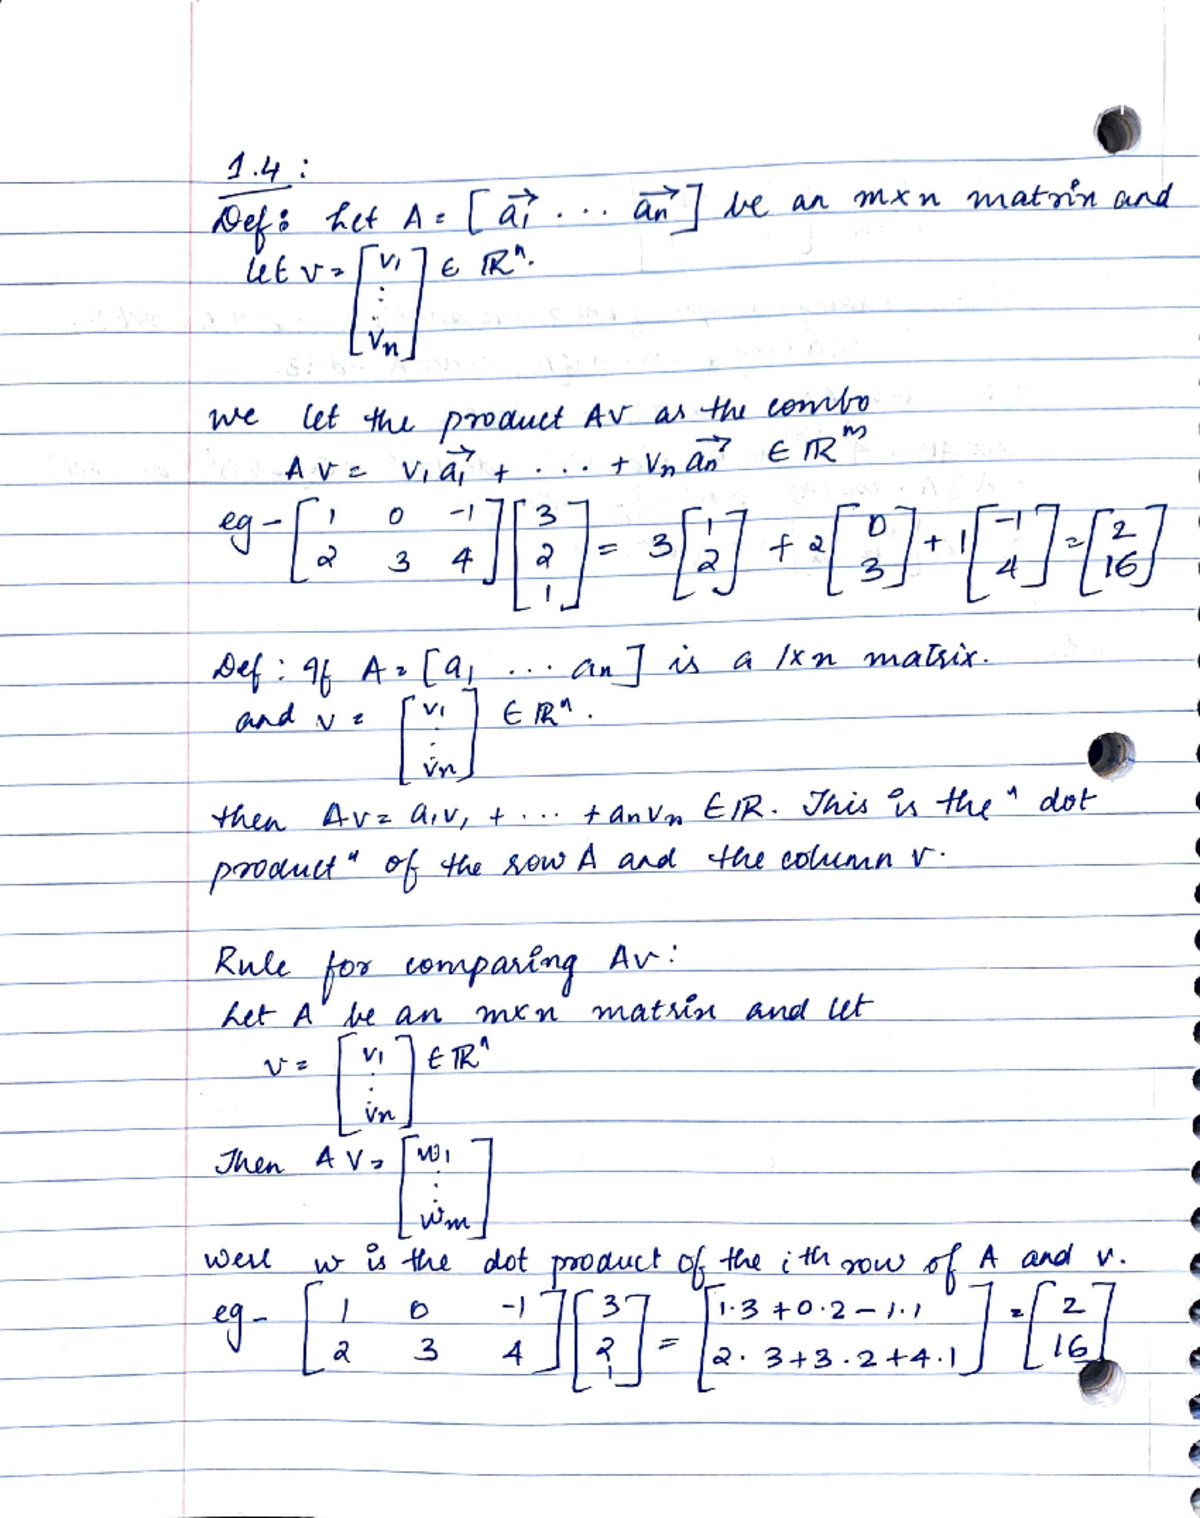 1.4 :
Def : Let A = [ a₁⃗ . . . aₙ⃗ ] be an m×n matrix and
let v = [ v₁ ⋮ vₙ ] ∈ ℝⁿ.
we let the product Av as the combo
Av = v₁ a₁⃗ + . . . + vₙ aₙ⃗ ∈ ℝᵐ
eg - [ 1 0 -1 ; 2 3 4 ] [ 3 ; 2 ; 1 ] = 3 [ 1 ; 2 ] + 2 [ 0 ; 3 ] + 1 [ -1 ; 4 ] = [ 2 ; 16 ]
Def : If A = [ a₁ . . . aₙ ] is a 1×n matrix.
and v = [ v₁ ⋮ vₙ ] ∈ ℝⁿ .
then Av = a₁v₁ + . . . + aₙvₙ ∈ ℝ. This is the " dot
product " of the row A and the column v.
Rule for comparing Av :
Let A be an m×n matrix and let
v = [ v₁ ⋮ vₙ ] ∈ ℝⁿ
Then AV = [ w₁ ⋮ wₘ ]
were w is the dot product of the ith row of A and v.
eg - [ 1 0 -1 ; 2 3 4 ] [ 3 ; 2 ; 1 ] = [ 1·3 + 0·2 - 1·1 ; 2·3 + 3·2 + 4·1 ] = [ 2 ; 16 ]